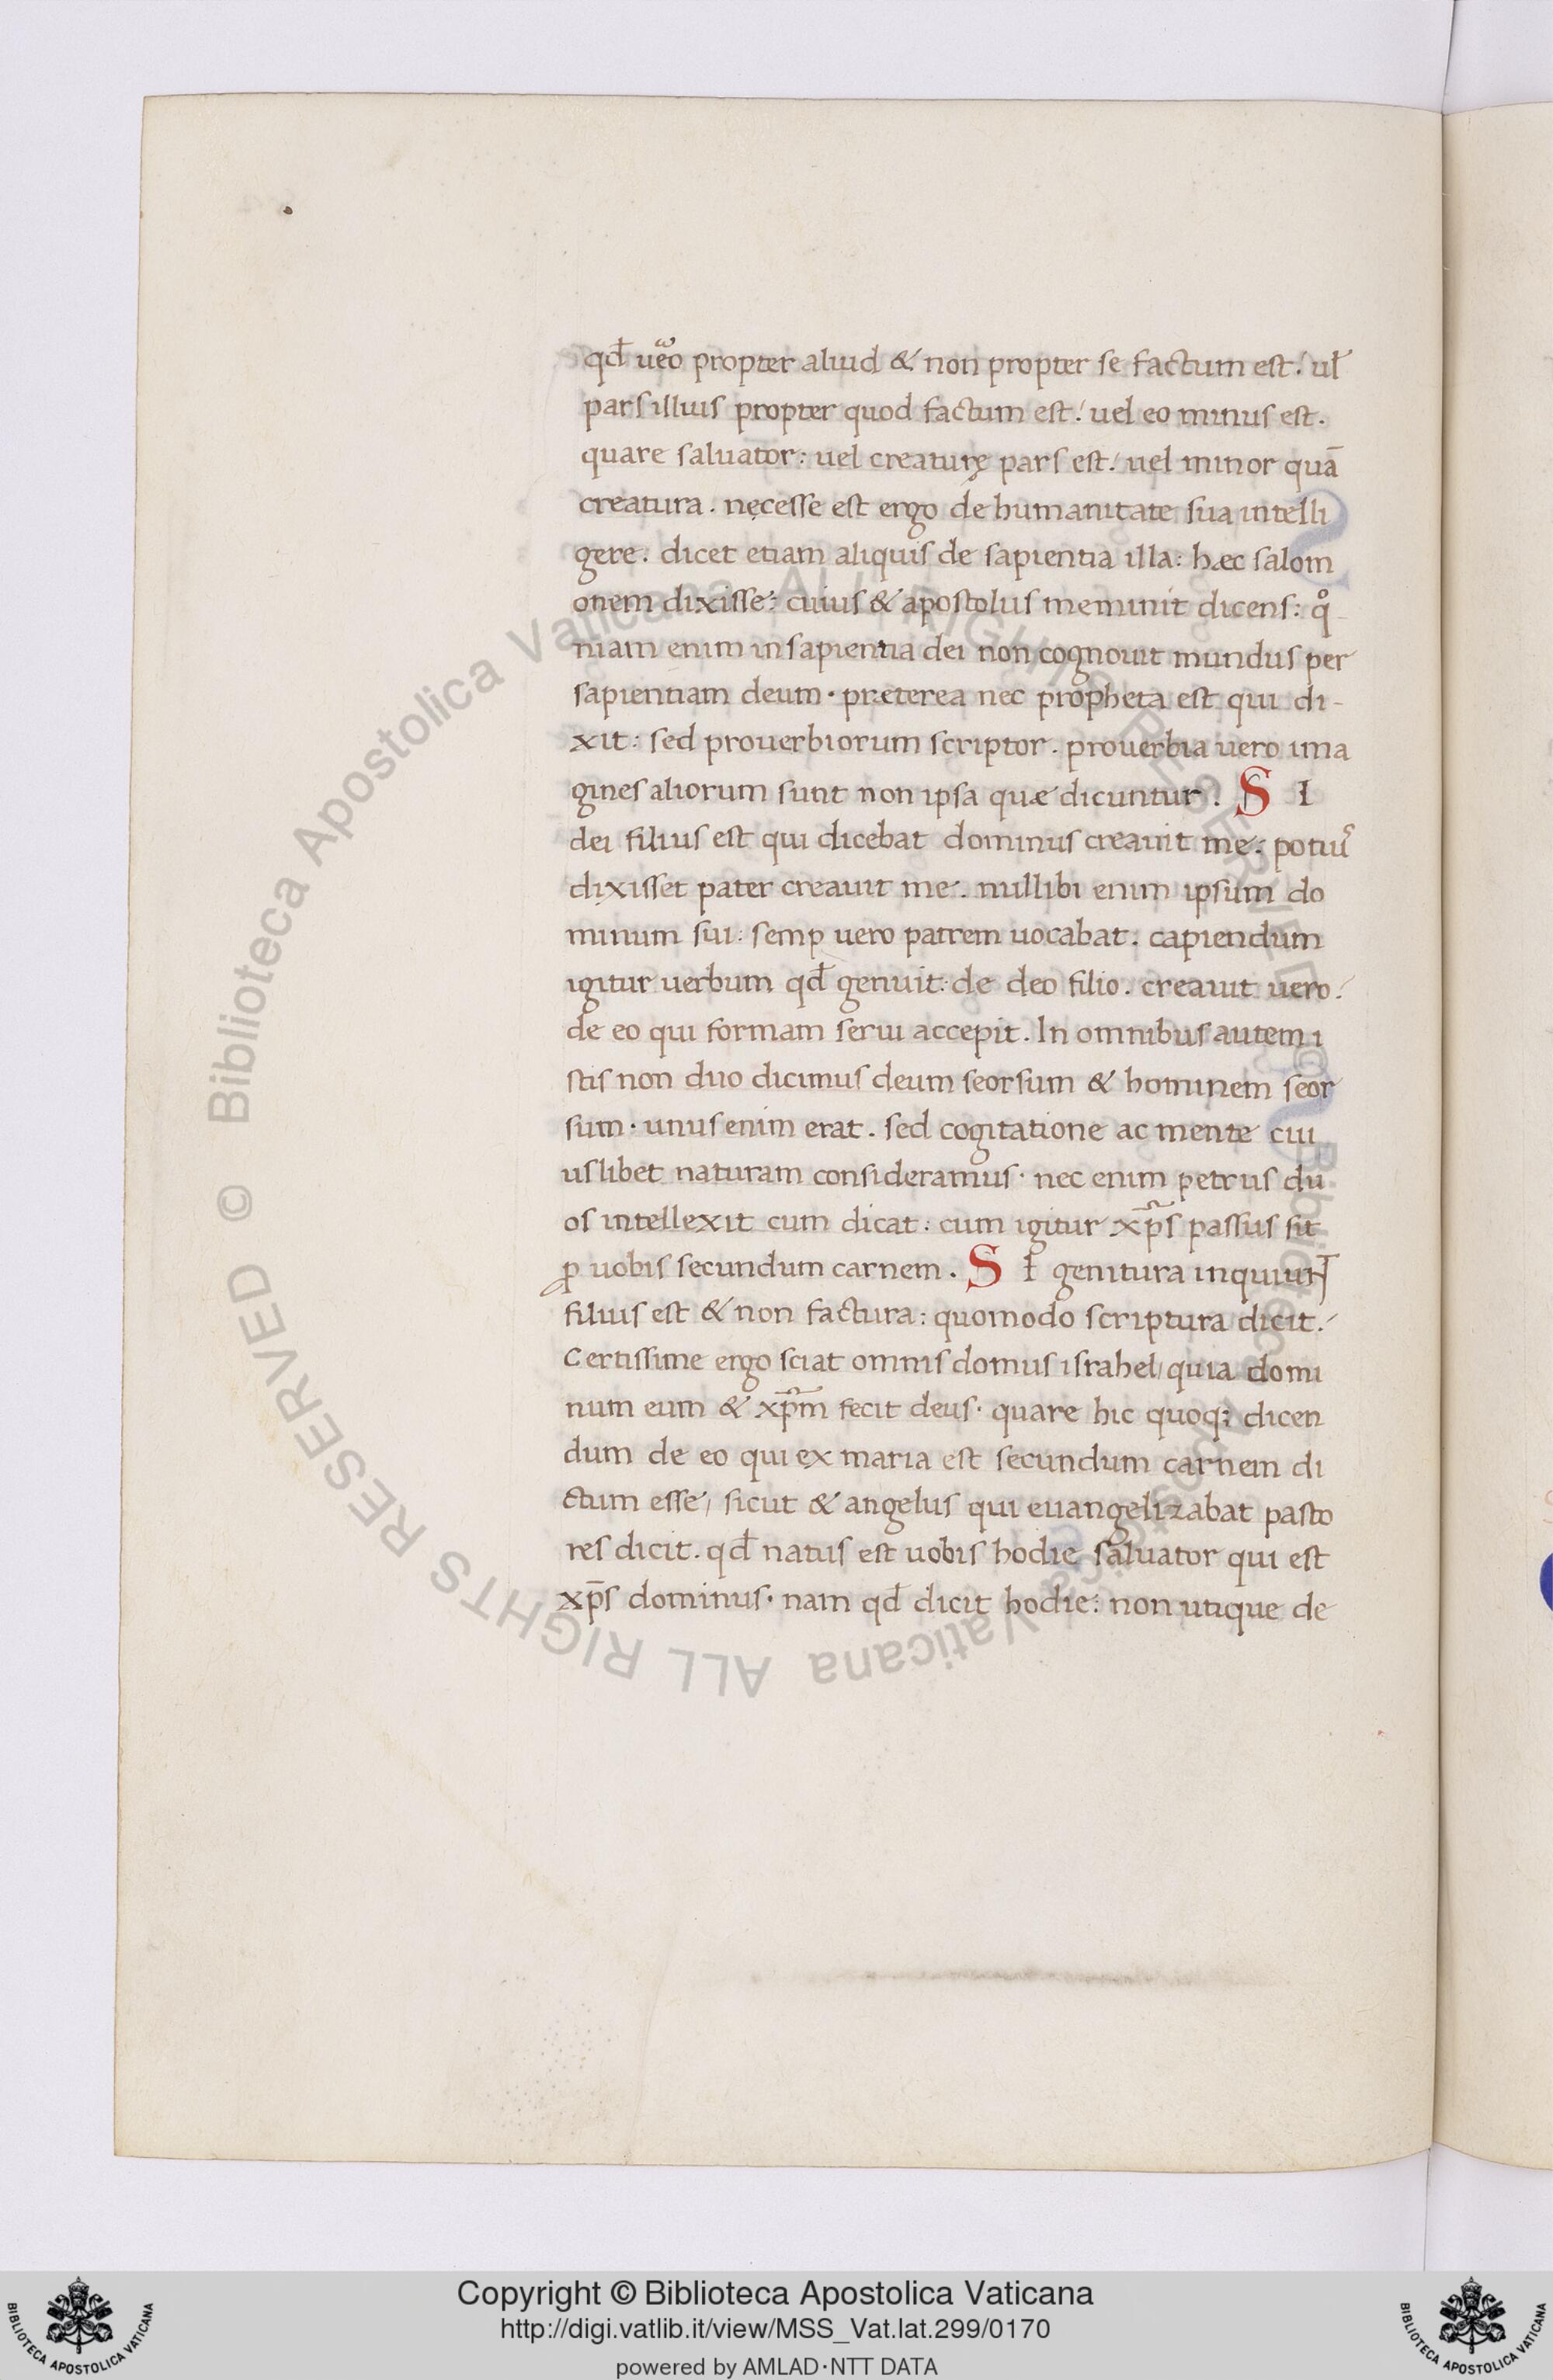 qđ ueͣo propter aliud & non propter se factum est: ul̄
pars illius propter quod factum est: uel eo minus est.
quare saluator: uel creaturę pars est: uel minor quā
creatura. necesse est ergo de humanitate sua intelli
gere. dicet etiam aliquis de sapientia illa: hæc salom
onem dixisse: cuius & apostolus meminit dicens: qͦ
niam enim in sapientia dei non cognouit mundus per
sapientiam deum· præterea nec propheta est qui di-
xit: sed prouerbiorum scriptor. prouerbia uero ima
gines aliorum sunt non ipsa quæ dicuntur. S I
dei filius est qui dicebat dominus creauit me: potiuˢ
dixisset pater creauit me. nullibi enim ipsum do
minum sui: semp uero patrem uocabat. capiendum
igitur uerbum qđ genuit: de deo filio. creauit uero:
de eo qui formam serui accepit. In omnibus autem i
stis non duo dicimus deum seorsum & hominem seor
sum· unus enim erat. sed cogitatione ac mente cui
uslibet naturam consideramus· nec enim petrus du
os intellexit cum dicat: cum igitur xp̄s passus sit
ꝓ uobis secundum carnem. S I genitura inquiunt
filius est & non factura: quomodo scriptura dicit:
Certissime ergo sciat omnis domus israhel, quia domi
num eum & xp̄m fecit deus· quare hic quoq; dicen
dum de eo qui ex maria est secundum carnem di
ctum esse, sicut & angelus qui euangelizabat pasto
res dicit. qđ natus est uobis hodie saluator qui est
xp̄s dominus· nam qđ dicit hodie: non utique de
© Biblioteca Apostolica Vaticana ALL RIGHTS RESERVED © Biblioteca Apostolica Vaticana ALL RIGHTS RESERVED
Copyright © Biblioteca Apostolica Vaticana
http://digi.vatlib.it/view/MSS_Vat.lat.299/0170
powered by AMLAD·NTT DATA
BIBLIOTECA APOSTOLICA VATICANA
BIBLIOTECA APOSTOLICA VATICANA